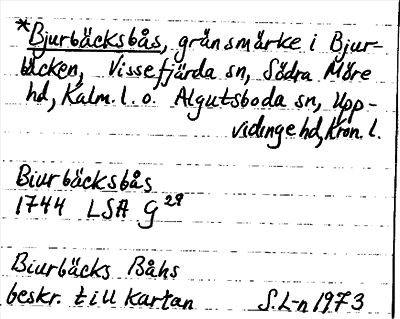 *Bjurbäcksbås, gränsmärke i Bjur-
bäcken, Vissefjärda sn, Södra Möre
hd, Kalm. l. o. Algutsboda sn, Upp-
vidinge hd, Kron. l.
Biurbäcksbås
1744 LSA G 29
Biurbäcks Båhs
beskr. till kartan S.L-n 1973